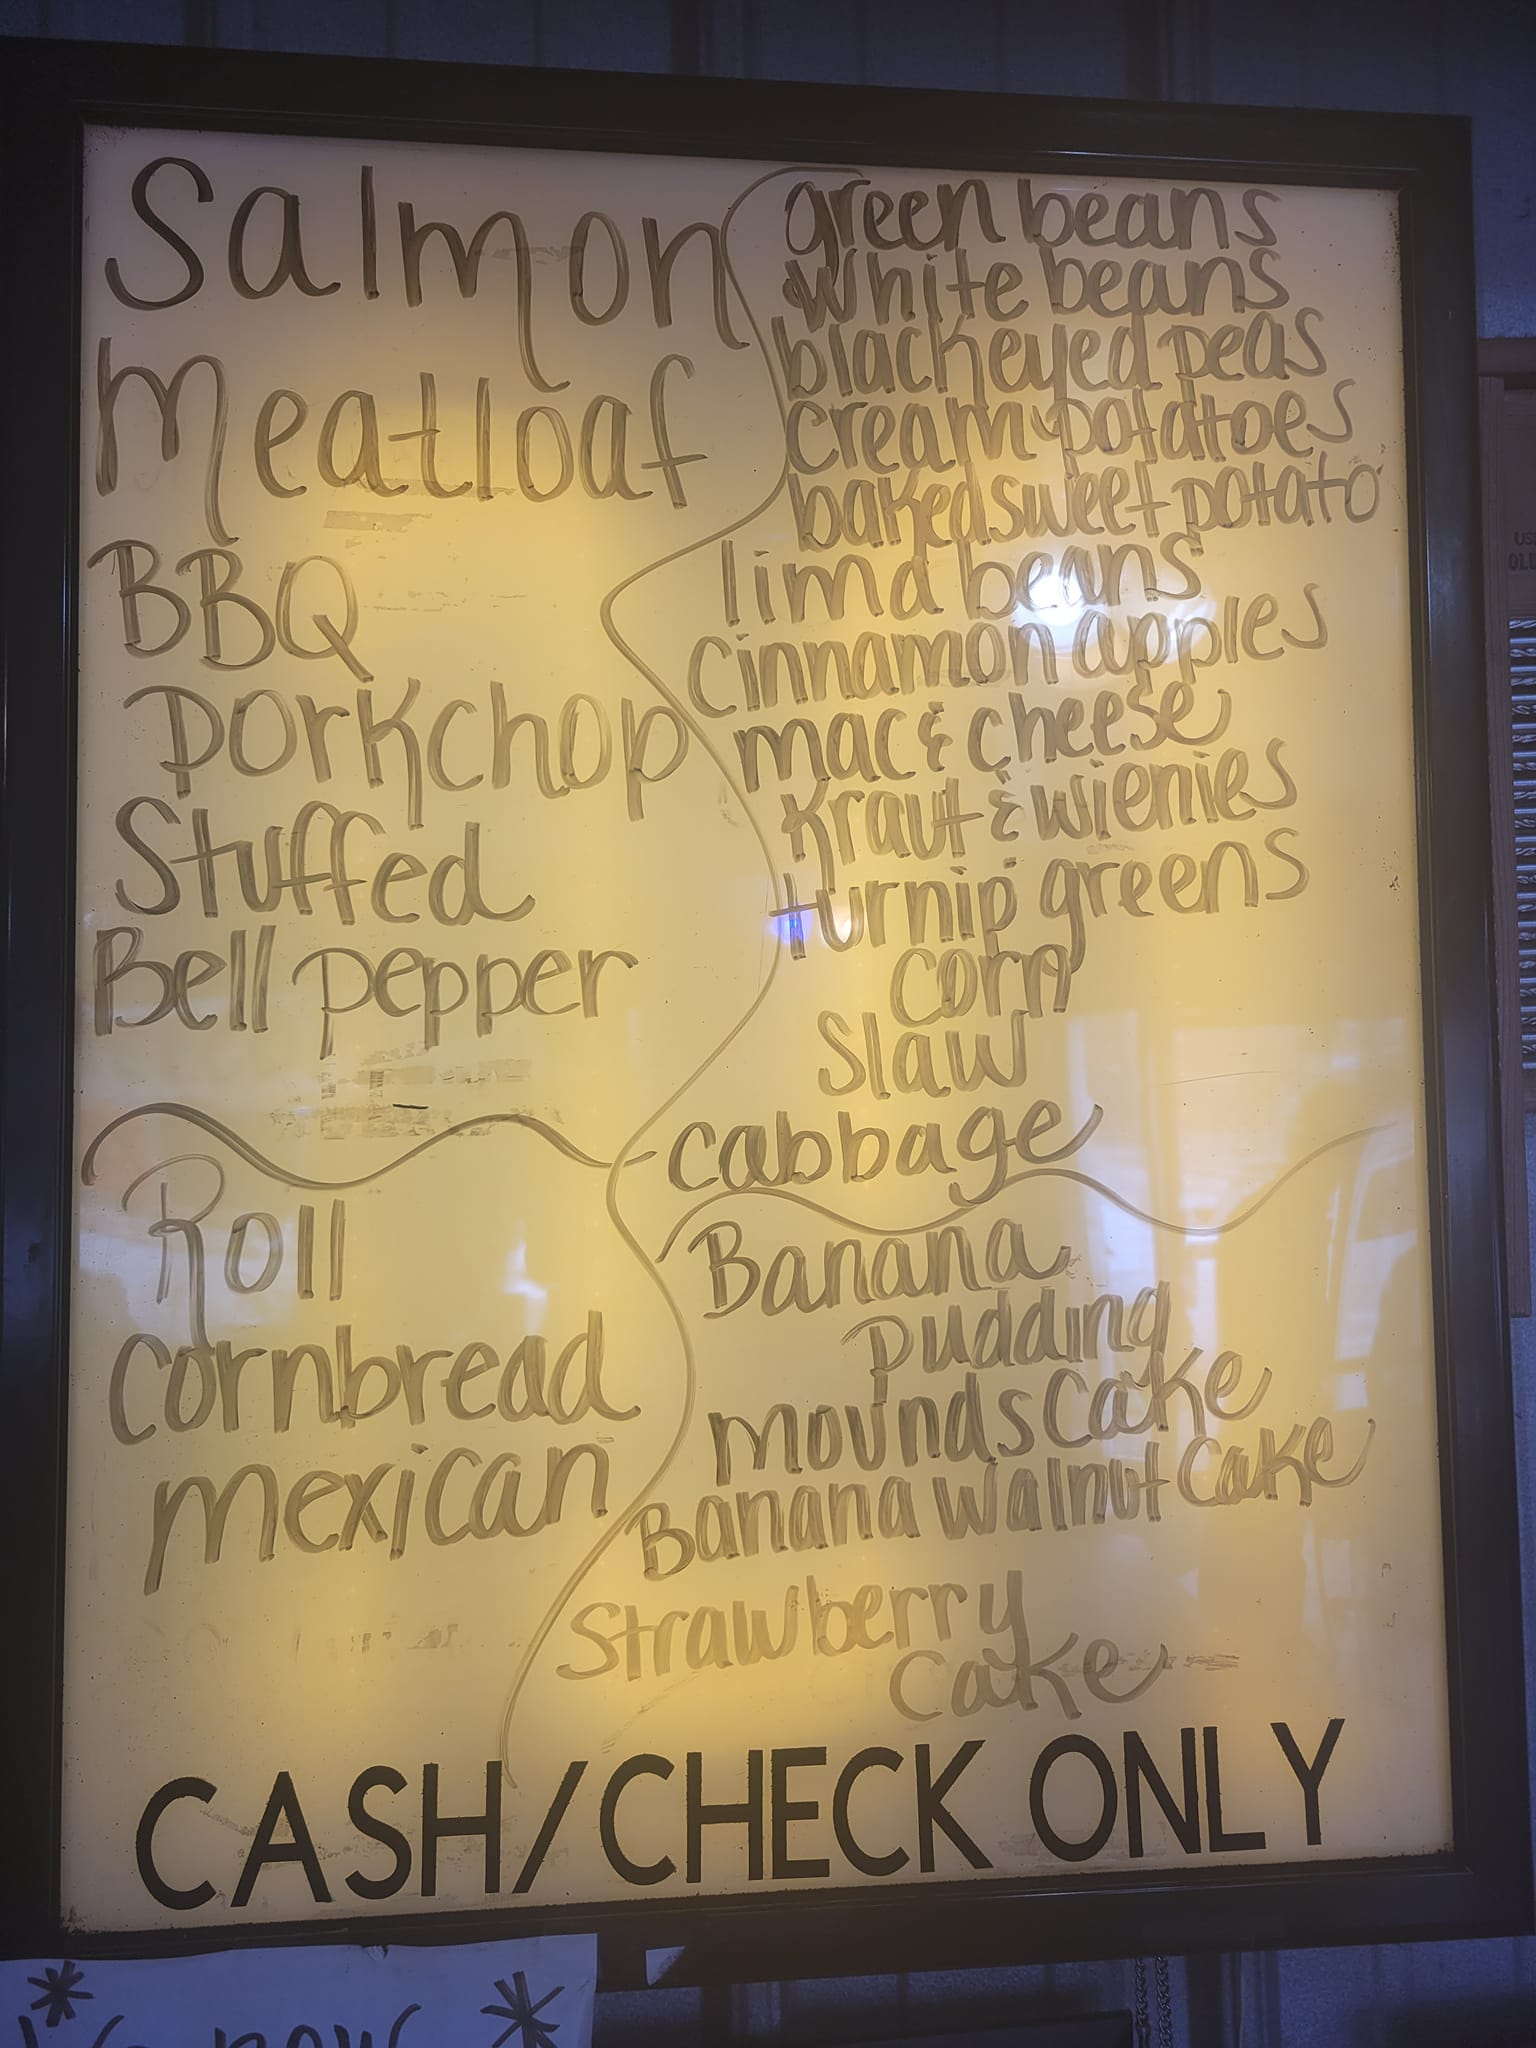 Salmon
Meatloaf
BBQ
Porkchop
Stuffed
Bell pepper
Roll
Cornbread
Mexican
green beans
white beans
blackeyed peas
cream potatoes
baked sweet potato
lima beans
cinnamon apples
mac & cheese
Kraut & wienies
turnip greens
corn
Slaw
cabbage
Banana
Pudding
mounds Cake
Banana Walnut Cake
Strawberry
Cake
CASH/CHECK ONLY